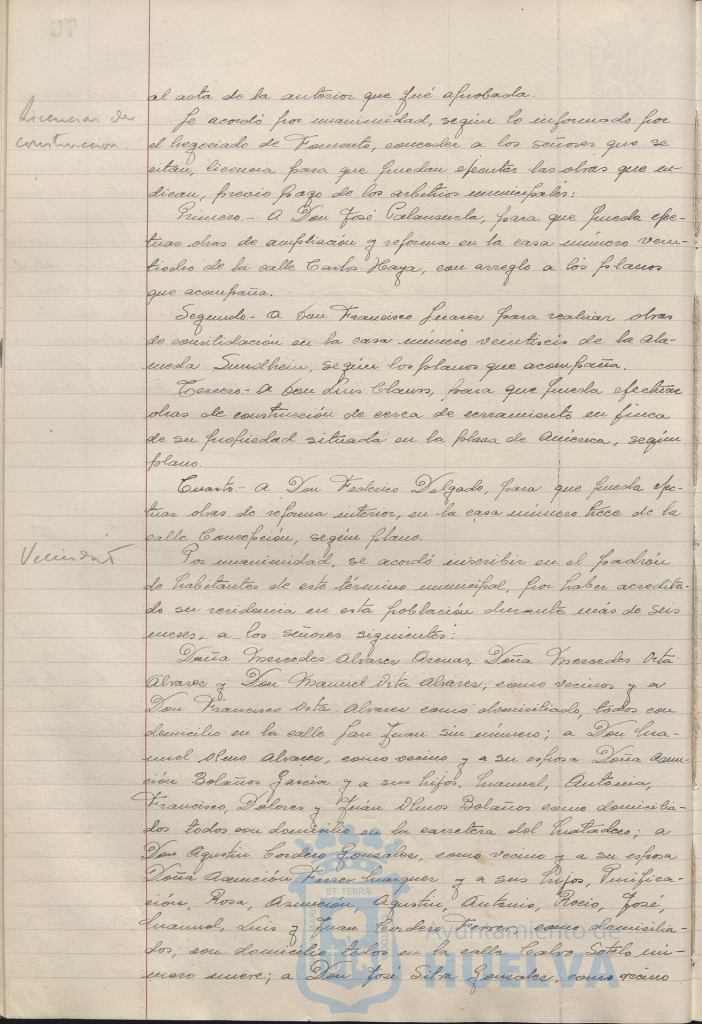 al acta de la anterior que fué aprobada.
Licencias de
construccion.
Se acordó por unanimidad, según lo informado por
el negociado de Fomento, conceder a los señores que se
citan, licencia para que puedan ejecutar las obras que in-
dican, previo pago de los arbitrios municipales:
Primero.- A Don José Palanzuela, para que pueda efec-
tuar obras de ampliación y reforma en la casa número vein-
tiocho de la calle Carlos Haya, con arreglo a los planos
que acompaña.
Segundo- A Don Francisco Suarez para realizar obras
de consilidación en la casa número ventiseis de la Ala-
meda Sundhein, según los planos que acompaña.
Tercero- A Don Luis Clauss, para que pueda efectuar
obras de construcción de cerca de cerramiento en finca
de su propiedad situada en la plaza de América, según
plano.
Cuarto- A Don Federico Delgado, para que pueda efec-
tuar obras de reforma interior, en la casa número trece de la
calle Concepción, según plano.
Vecindad
Por unanimidad, se acordó inscribir en el padrón
de habitantes de este término municipal, por haber acredita-
do su residencia en esta población durante más de seis
meses, a los señores siguientes:
Doña Mercedes Alvarez Arenas, Doña Mercedes Orta
Alvarez y Don Manuel Orta Alvarez, como vecinos y a
Don Francisco Orta Alvarez como domiciliado, todos con
domicilio en la calle San Juan sin número; a Don Ma-
nuel Olmo Alvarez, como vecino y a su esposa Doña Asun-
ción Bolaños Garcia y a sus hijos, Manuel, Antonia,
Francisco, Dolores y Juan Olmos Bolaños como domicilia-
dos todos con domicilio en la carretera del Matadero; a
Don Agustin Cordero Gonzalez, como vecino y a su esposa
Doña Asunción Ferrer Minguez y a sus hijos, Purifica-
ción, Rosa, Asunción, Agustin, Antonio, Rocio, José,
Manuel, Luis y Juan Cordero Ferrer como domicilia-
dos, con domicilio todos en la calle Calvo Sotelo nú-
mero nueve; a Don José Silva Gonzalez, como vecino
ET TERRÆ
Ayuntamiento de
HUELVA